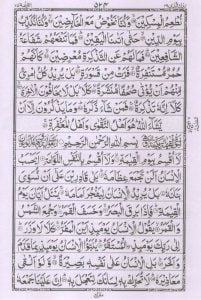 ٥٢٤
نُطْعِمُ الْمِسْكِينَ وَكُنَّا نَخُوضُ مَعَ الْخَائِضِينَ وَكُنَّا نُكَذِّبُ
بِيَوْمِ الدِّينِ حَتَّى أَتَانَا الْيَقِينُ فَمَا تَنْفَعُهُمْ شَفَاعَةُ
الشَّافِعِينَ فَمَا لَهُمْ عَنِ التَّذْكِرَةِ مُعْرِضِينَ كَأَنَّهُمْ
حُمُرٌ مُسْتَنْفِرَةٌ فَرَّتْ مِنْ قَسْوَرَةٍ بَلْ يُرِيدُ كُلُّ امْرِئٍ
مِنْهُمْ أَنْ يُؤْتَى صُحُفًا مُنَشَّرَةً كَلَّا بَلْ لَا يَخَافُونَ
الْآخِرَةَ كَلَّا إِنَّهُ تَذْكِرَةٌ فَمَنْ شَاءَ ذَكَرَهُ وَمَا يَذْكُرُونَ إِلَّا أَنْ
يَشَاءَ اللَّهُ هُوَ أَهْلُ التَّقْوَى وَأَهْلُ الْمَغْفِرَةِ
بِسْمِ اللَّهِ الرَّحْمَنِ الرَّحِيمِ
لَا أُقْسِمُ بِيَوْمِ الْقِيَامَةِ وَلَا أُقْسِمُ بِالنَّفْسِ اللَّوَّامَةِ أَيَحْسَبُ
الْإِنْسَانُ أَلَّنْ نَجْمَعَ عِظَامَهُ بَلَى قَادِرِينَ عَلَى أَنْ نُسَوِّيَ
بَنَانَهُ بَلْ يُرِيدُ الْإِنْسَانُ لِيَفْجُرَ أَمَامَهُ يَسْأَلُ أَيَّانَ يَوْمُ
الْقِيَامَةِ فَإِذَا بَرِقَ الْبَصَرُ وَخَسَفَ الْقَمَرُ وَجُمِعَ الشَّمْسُ
وَالْقَمَرُ يَقُولُ الْإِنْسَانُ يَوْمَئِذٍ أَيْنَ الْمَفَرُّ كَلَّا لَا وَزَرَ
إِلَى رَبِّكَ يَوْمَئِذٍ الْمُسْتَقَرُّ يُنَبَّأُ الْإِنْسَانُ يَوْمَئِذٍ بِمَا قَدَّمَ
وَأَخَّرَ بَلِ الْإِنْسَانُ عَلَى نَفْسِهِ بَصِيرَةٌ وَلَوْ أَلْقَى
مَعَاذِيرَهُ لَا تُحَرِّكْ بِهِ لِسَانَكَ لِتَعْجَلَ بِهِ إِنَّ عَلَيْنَا جَمْعَهُ